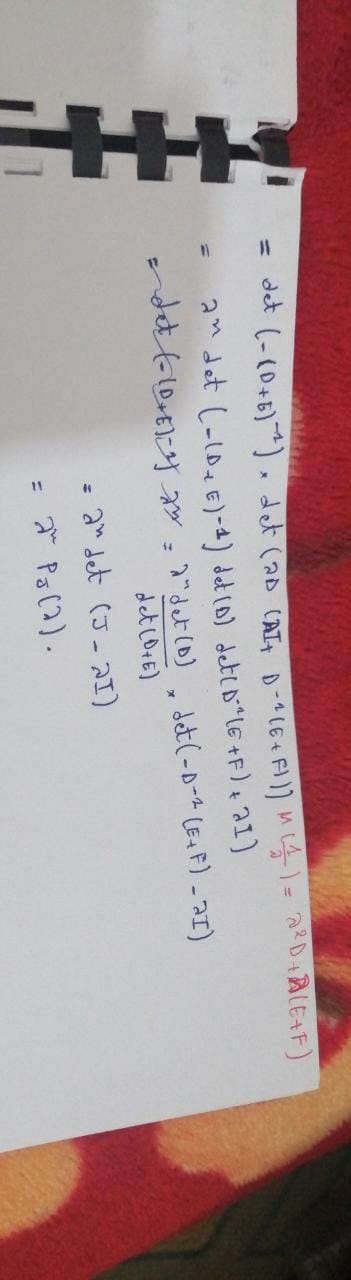 = det (-(D+E)⁻¹) × det (λD (λI + D⁻¹(E+F))) M(1/λ) = λ²D + λ(E+F)
= λⁿ det (-(D+E)-1) det(D) det(D⁻¹(E+F) + λI)
= det (-(D+E)-1) λⁿ = λⁿ det(D)/det(D+E) × det(-D⁻¹(E+F) - λI)
= λⁿ det (J - λI)
= λⁿ P_J(λ).